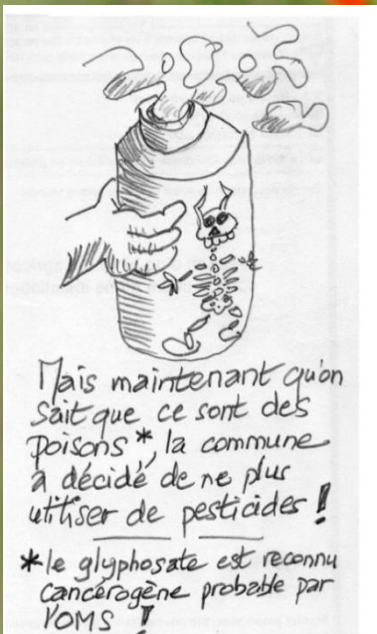 Mais maintenant qu'on
sait que ce sont des
poisons*, la commune
a décidé de ne plus
utiliser de pesticides !
*le glyphosate est reconnu
cancérogène probable par
l'OMS !